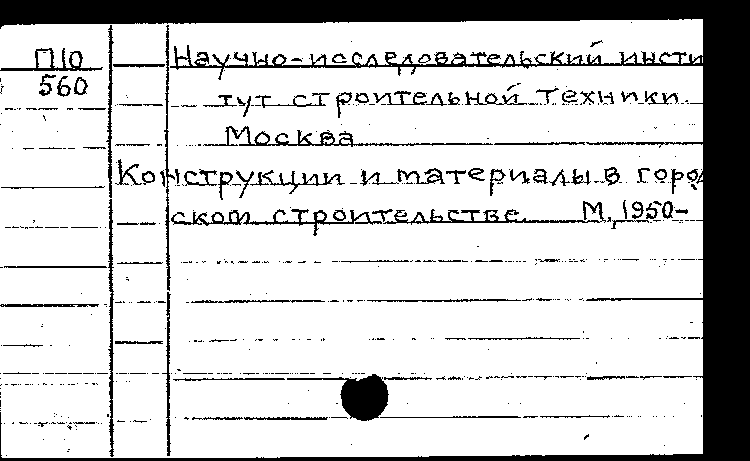 П10
560
Научно-исследовательский инсти
тут строительной техники.
Москва
Конструкции и материалы в город
ском строительстве. М., 1950-